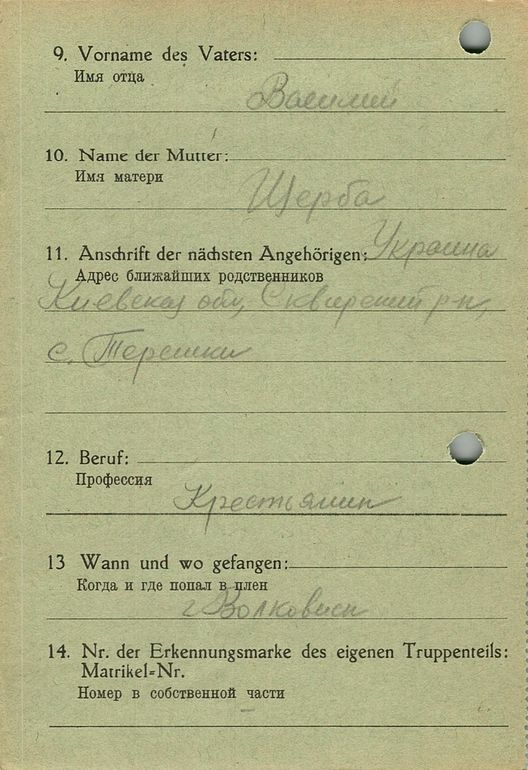 9. Vorname des Vaters:
Имя отца
Василий
10. Name der Mutter:
Имя матери
Щерба
11. Anschrift der nächsten Angehörigen: Украина
Адрес ближайших родственников
Киевская обл, Сквирский р-н,
с. Терешки
12. Beruf:
Профессия
Крестьянин
13 Wann und wo gefangen:
Когда и где попал в плен
г Волковиск
14. Nr. der Erkennungsmarke des eigenen Truppenteils:
Matrikel=Nr.
Номер в собственной части